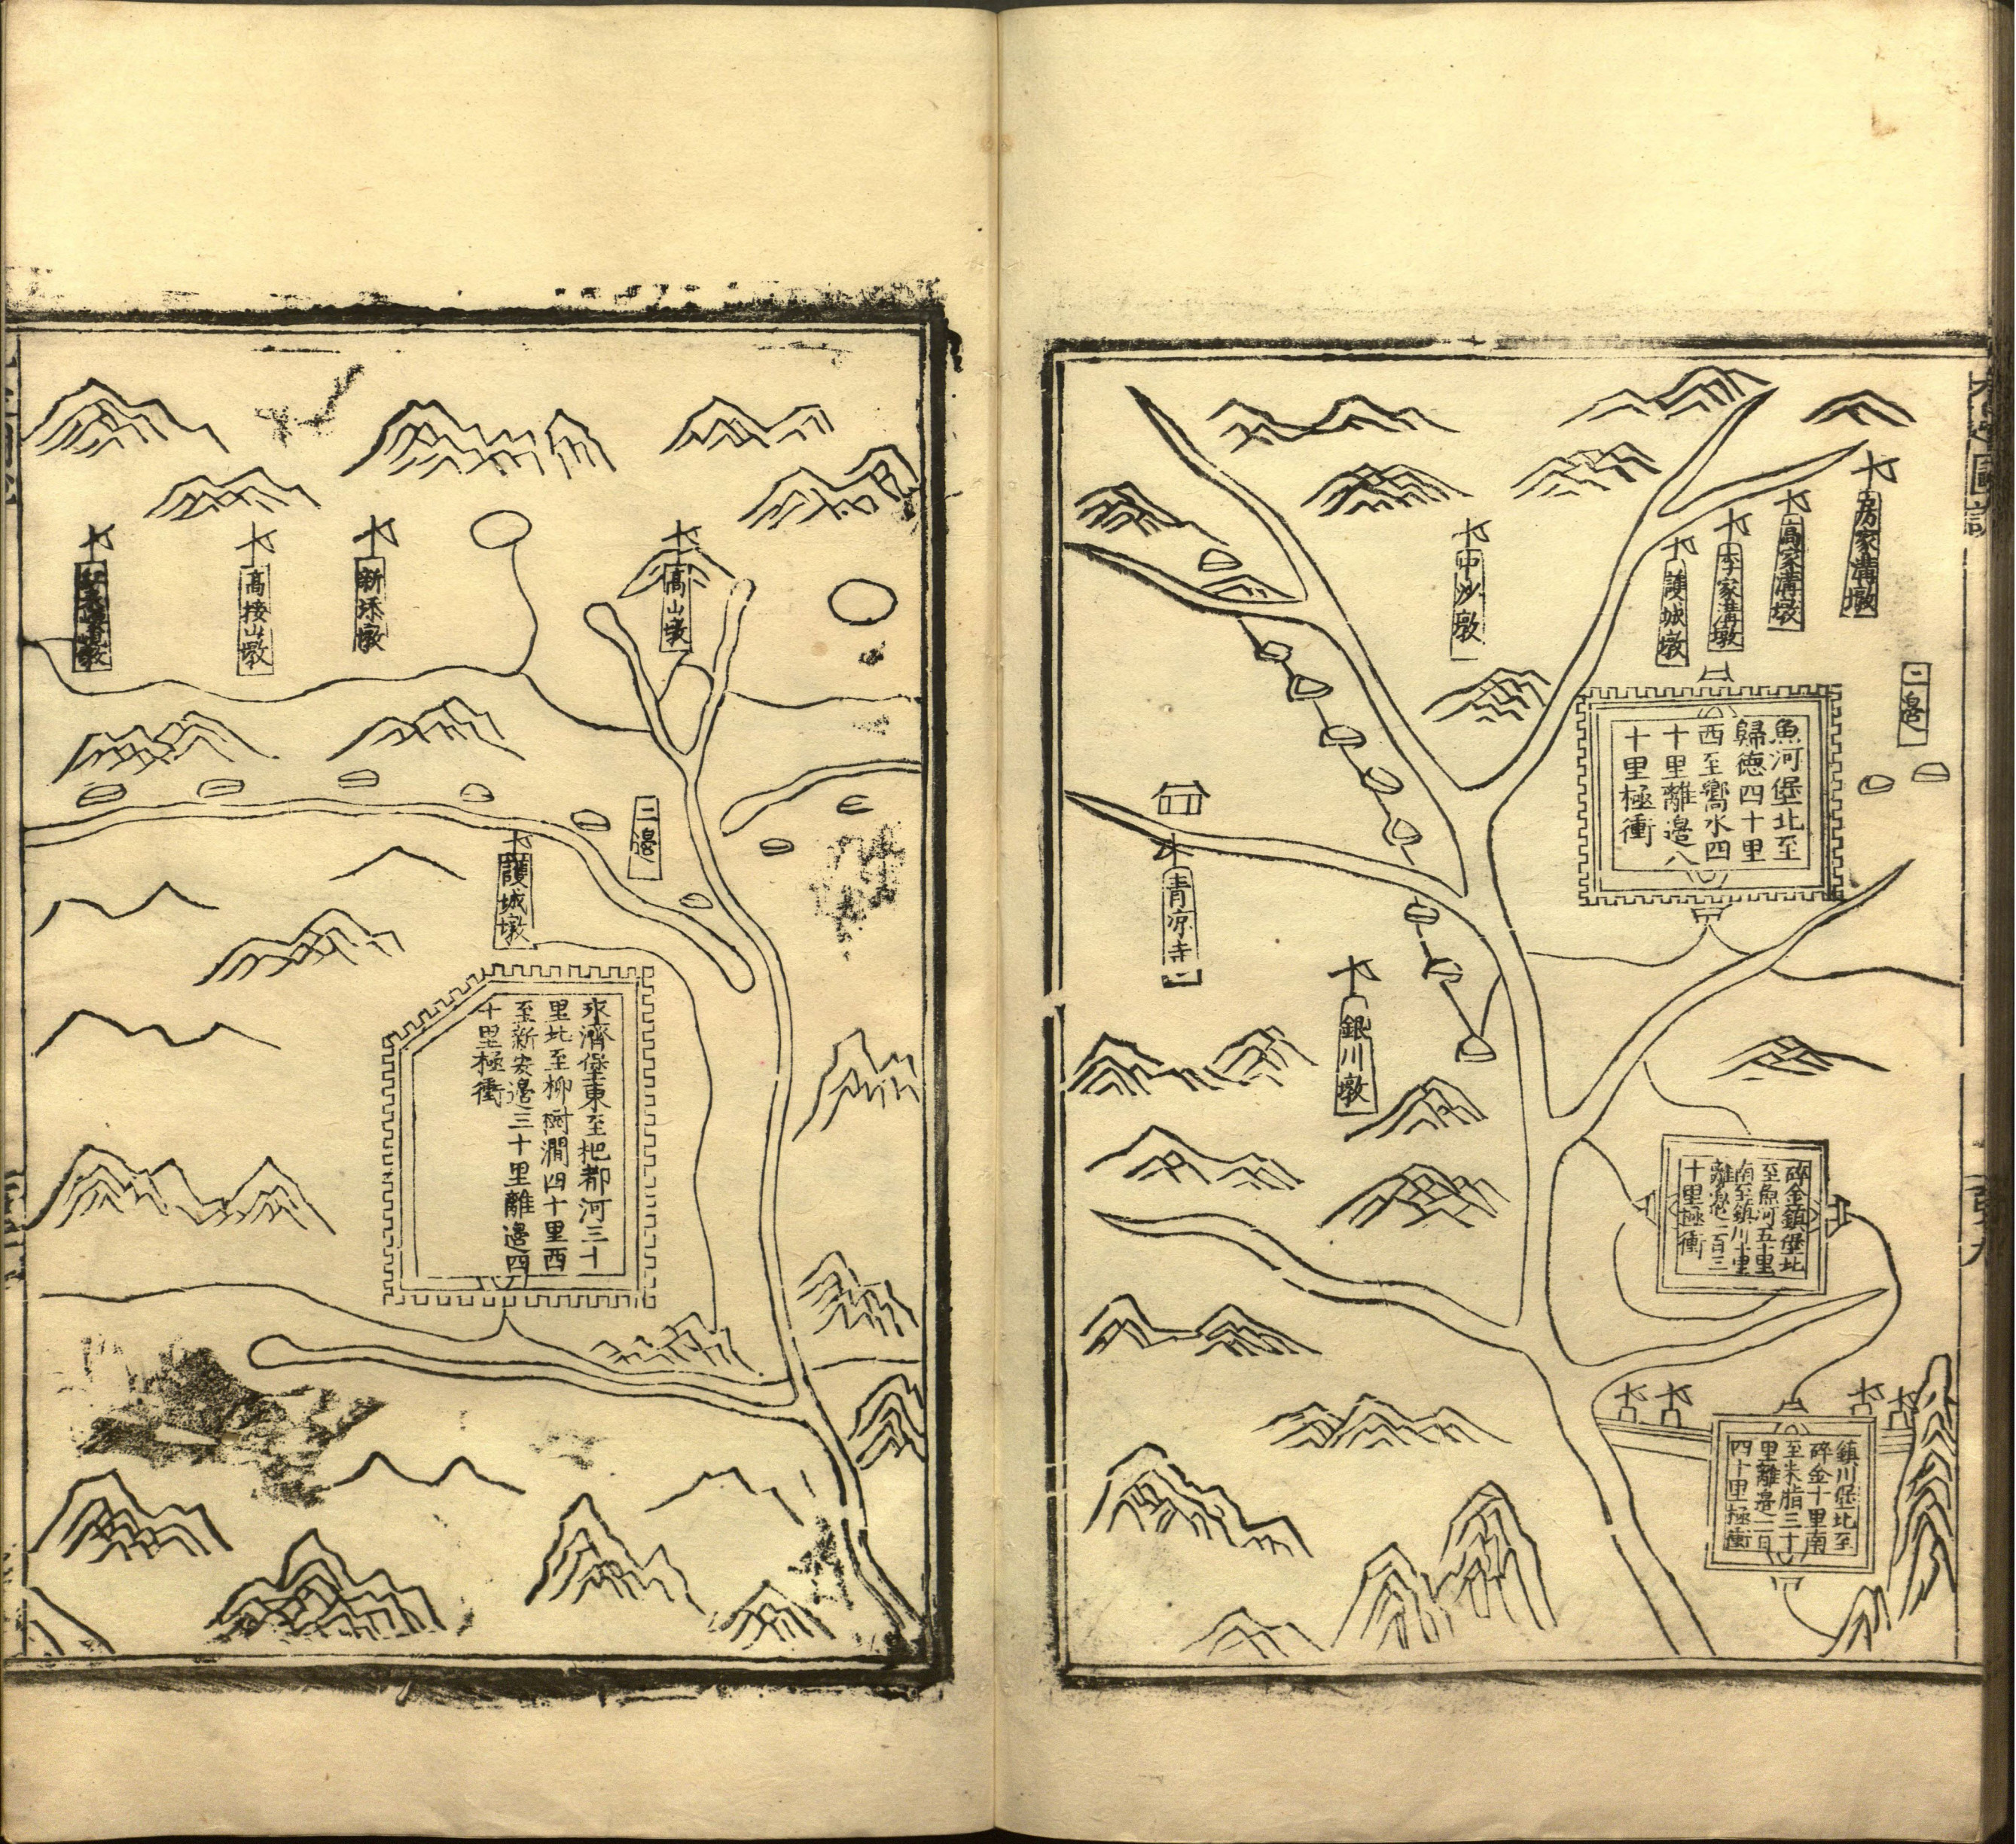 房家溝墩
高家溝墩
李家溝墩
護城墩
中沙墩
二邊
魚河堡北至
歸德四十里
西至嚮水四
十里離邊八
十里極衝
青凉寺
銀川墩
碎金鎮堡北
至魚河五十里
南至鎮川十里
離邊一百三
十里極衝
鎮川堡北至
碎金十里南
至米脂三十
里離邊一百
四十里極衝
高山墩
新墩
高接山墩
二邊
護城墩
永濟堡東至把都河三十
里北至柳樹澗四十里西
至新安邊三十里離邊四
十里極衝